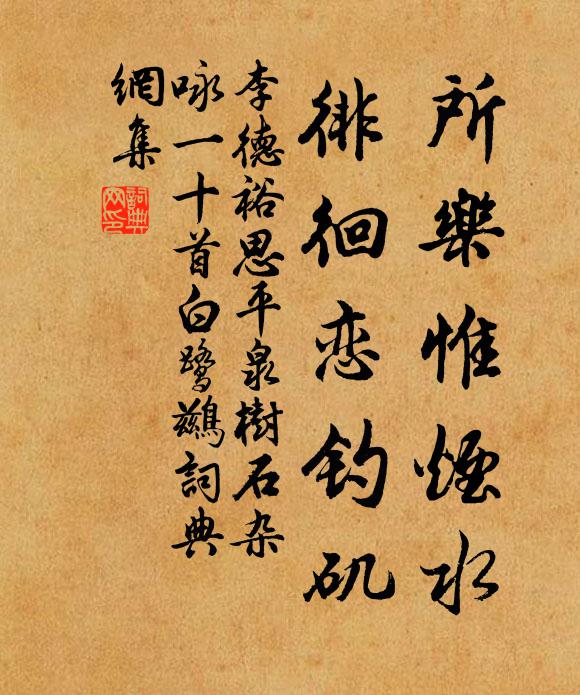 所樂惟煙水
徘徊恋钓矶
李德裕思平泉樹石杂
咏一十首白鹭鷀詞典
網集
詞典
网印